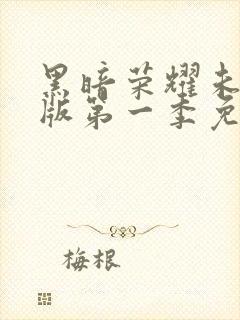 黑暗荣耀未
版第一季免
梅根